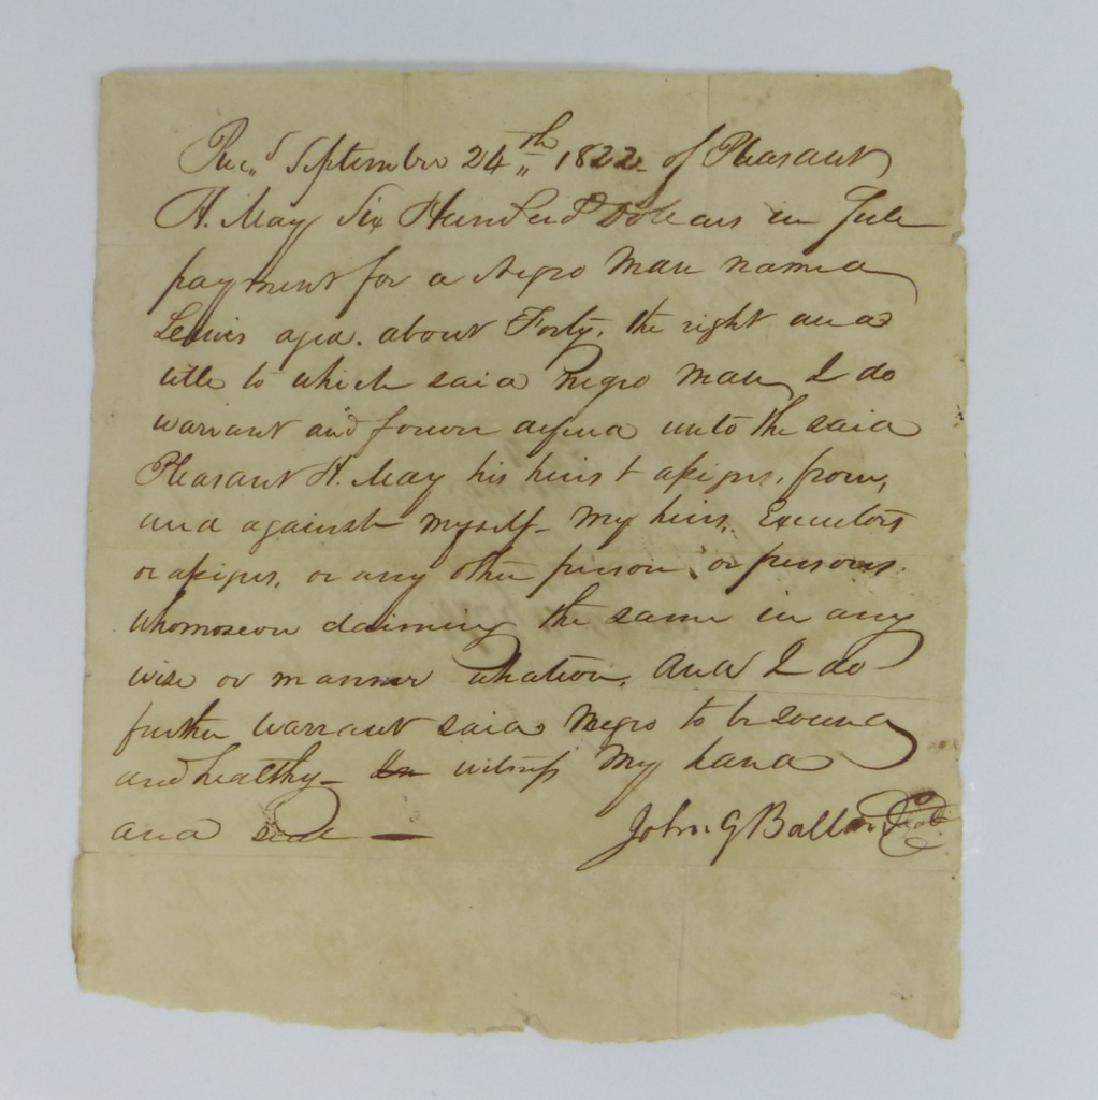 Rec,,d September 24th 1822 of Pleasant
H. May Six Hundred Dolears in Full
payment for a Negro Man named
Lewis aged. about Forty. the right and
title to which said Negro Man I do
warrant and forever defend unto the said
Pleasant H. May his heirs & assigns, from,
and against myself- my heirs, Executors
or assigns, or any other person, or persons.
Whomsoever claiming the same in any
wise or manner whatever. And I do
further warrant said Negro to be sound
and healthy- In witness My hand
and seal —
John. G Ballard Seal